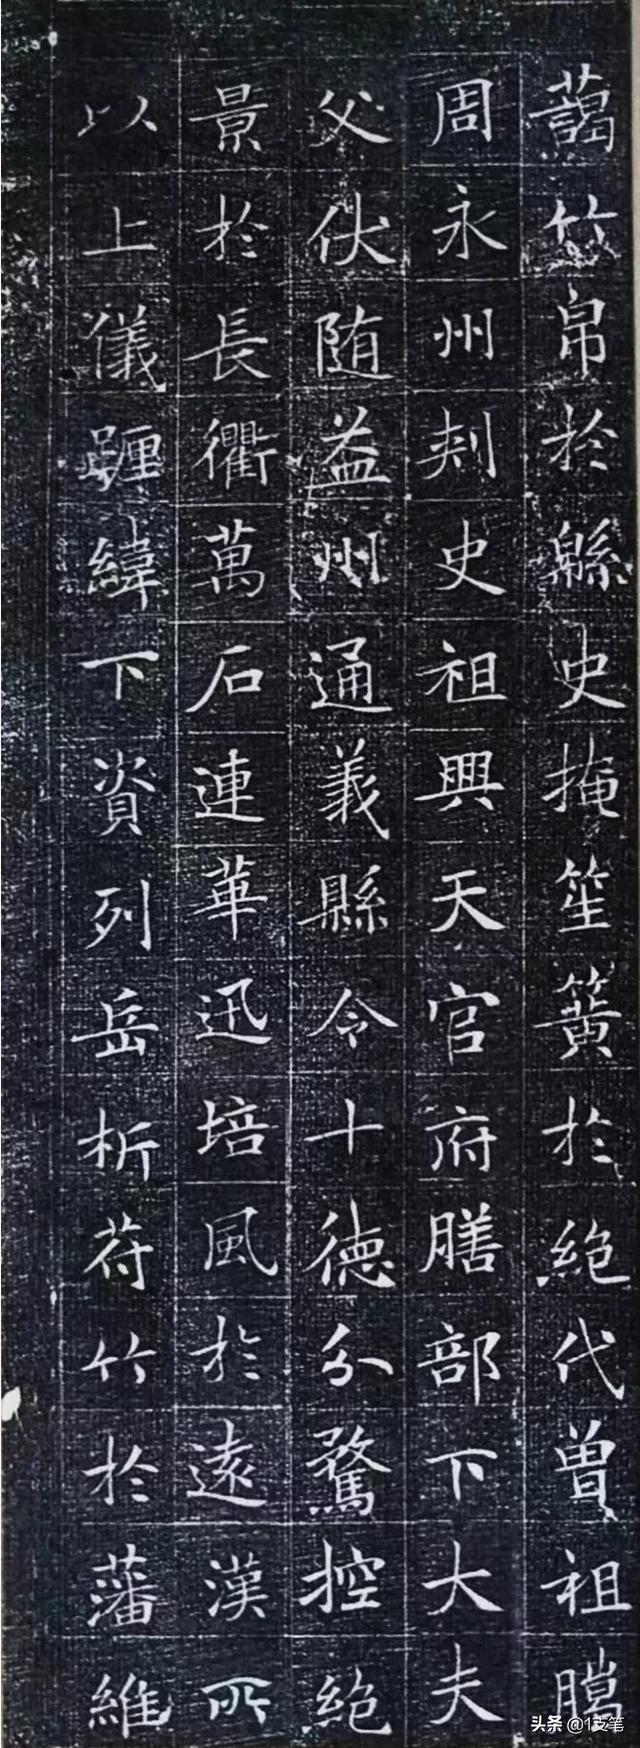 藹竹帛於緜史掩笙簧於絶代曾祖
周永州刾史祖興天官府膳部下大夫
父伏随益州通義縣令十徳分騖控絶
景於長衢萬石連華迅培風於遠漢所
以上儀躔緯下資列岳析苻竹於藩維
头条 @1支笔